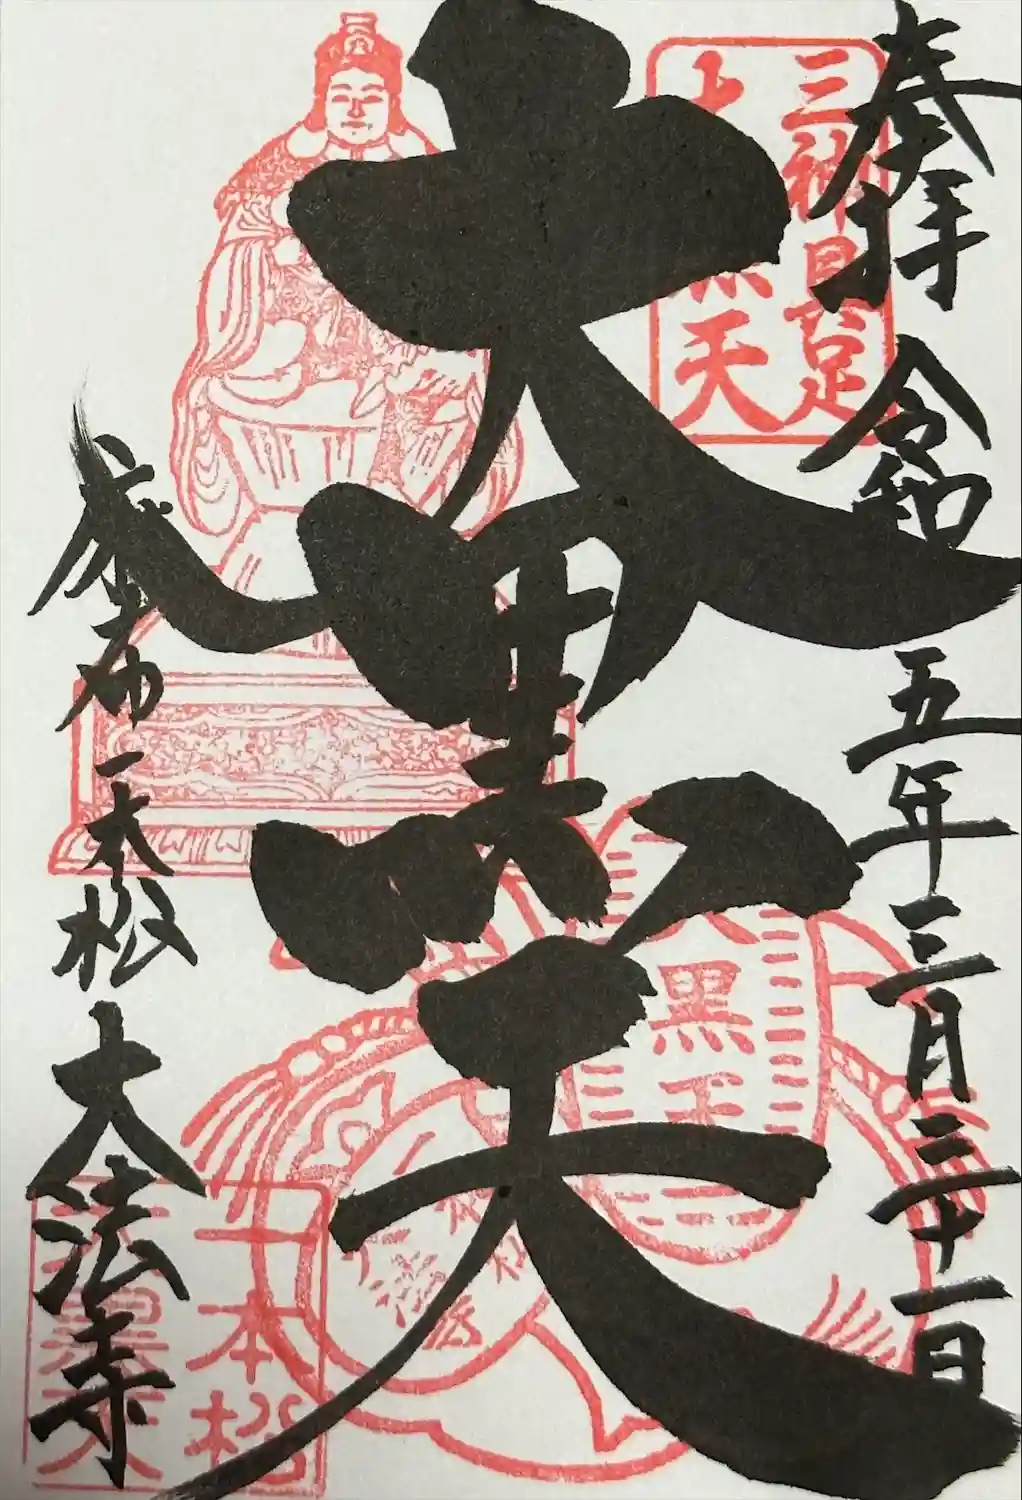 奉拝 令和五年三月三十一日
三神具足
大黒天
大黒天
黒天
麻布一本松 大法寺
一本松
大黒天